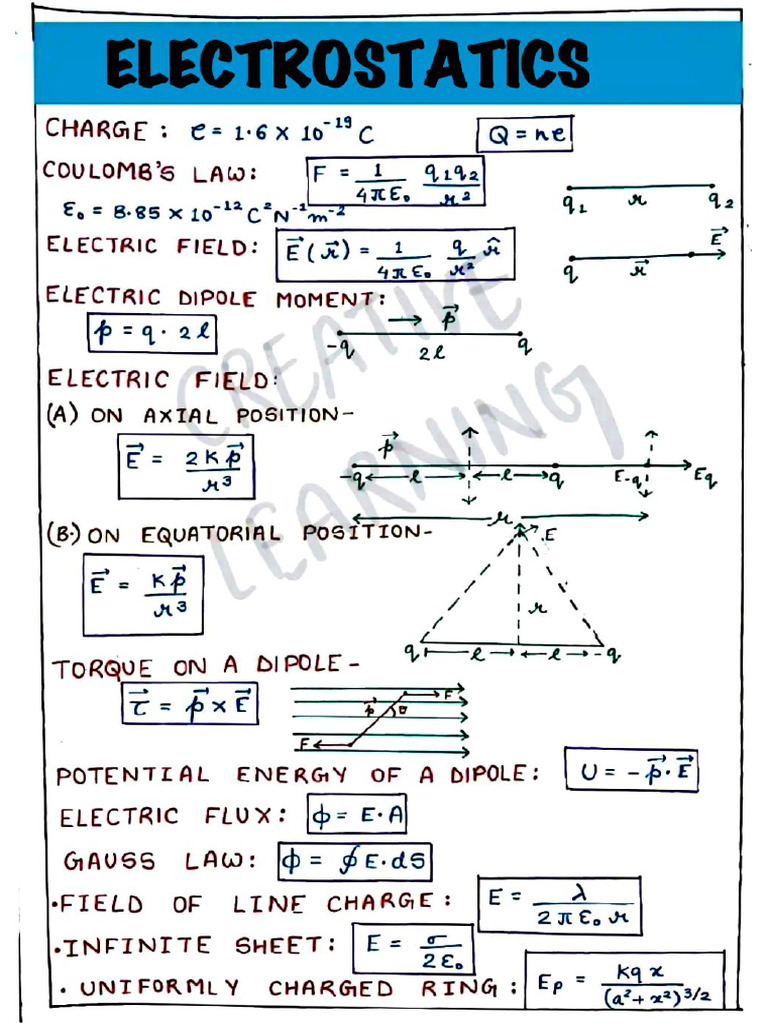 ELECTROSTATICS
CHARGE : e = 1.6 × 10⁻¹⁹ C   Q = ne
COULOMB'S LAW: F = 1/4πε₀ q₁q₂/r²
q₁ r q₂
ε₀ = 8.85 × 10⁻¹² C² N⁻¹ m⁻²
ELECTRIC FIELD: E⃗(r⃗) = 1/4πε₀ q/r² r̂
q r⃗ E⃗
ELECTRIC DIPOLE MOMENT:
p = q · 2l
p⃗
-q 2l q
ELECTRIC FIELD:
(A) ON AXIAL POSITION-
E⃗ = 2Kp⃗/r³
p⃗
-q l l q E-q Eq
r
(B.) ON EQUATORIAL POSITION-
E⃗ = Kp⃗/r³
E
r
q l l -q
TORQUE ON A DIPOLE-
τ⃗ = p⃗ × E⃗
F p⃗ θ
F
POTENTIAL ENERGY OF A DIPOLE: U = -p⃗·E⃗
ELECTRIC FLUX: ϕ = E·A
GAUSS LAW: ϕ = ∮E·dS
•FIELD OF LINE CHARGE: E = λ/2πε₀r
•INFINITE SHEET: E = σ/2ε₀
• UNIFORMLY CHARGED RING: Ep = Kqx/(a²+x²)³/²
CREATIVE
LEARNING